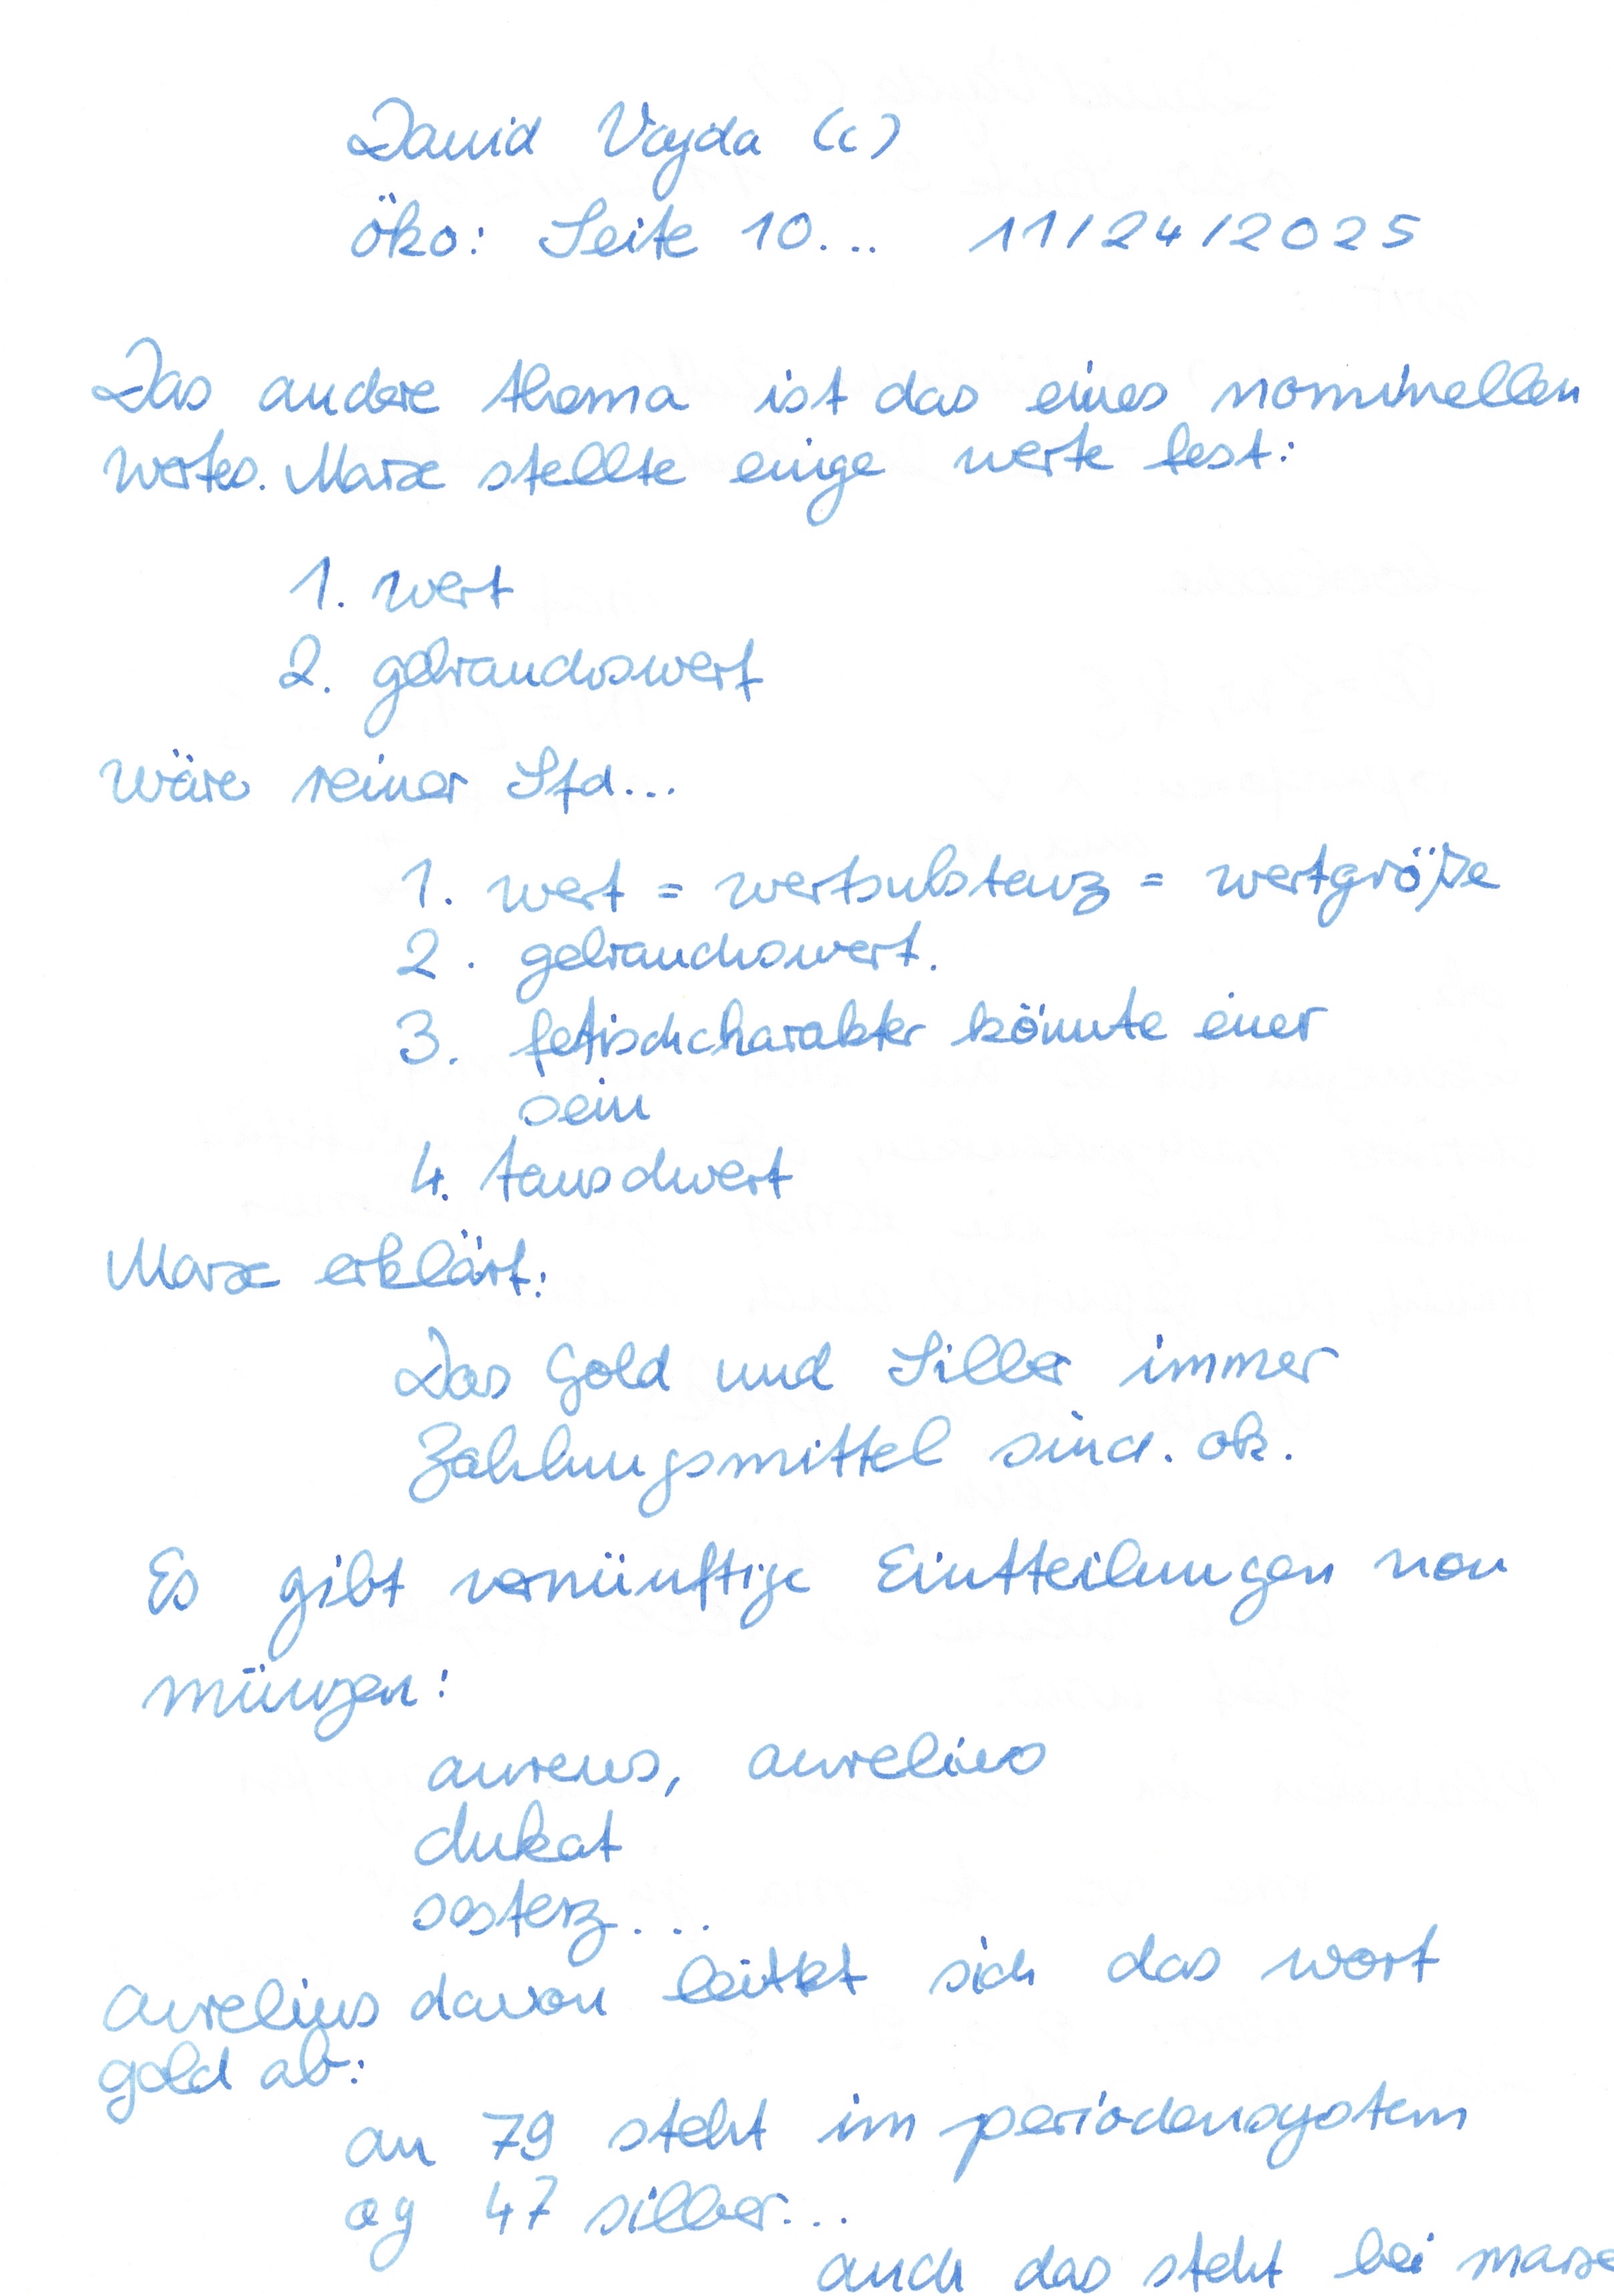 David Vajda (c)
öko: Seite 10... 11/24/2025
Das andere thema ist das eines nominellen
wertes. Marx stellte einige werte fest:
1. wert
2. gebrauchswert
wäre reiner Std...
1. wert = wertsubstanz = wertgröße
2. gebrauchswert.
3. fetischcharakter könnte einer
sein
4. tauschwert
Marx erklärt:
Das Gold und Silber immer
Zahlungsmittel sind. ok.
Es gibt vernünftige Eintteilungen von
münzen:
aureus, aurelius
dukat
sesterz....
aurelius davon leitet sich das wort
gold ab:
au 79 steht im periodensystem
ag 47 silber...
auch das steht bei marx